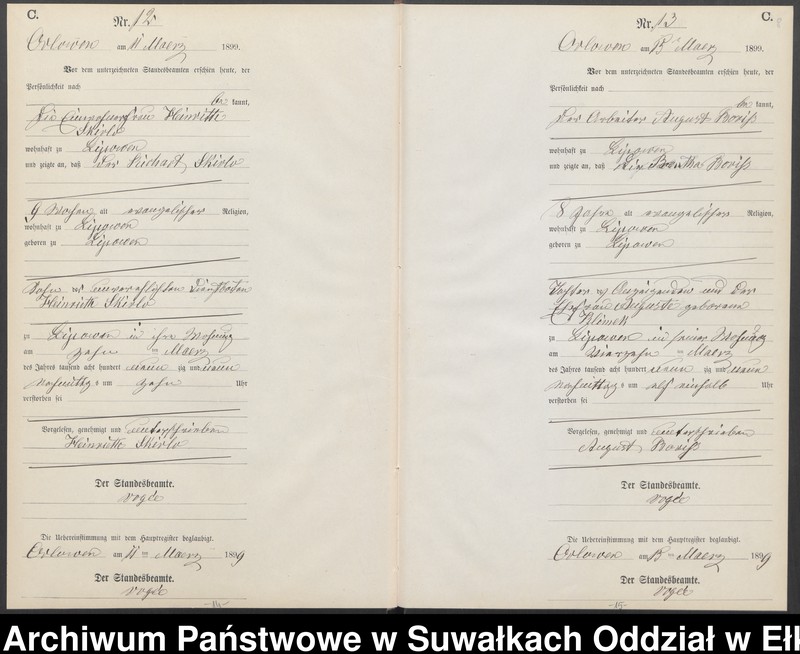 C.
Nr. 12
Orlowen am 11 Maerz 1899.
Vor dem unterzeichneten Standesbeamten erschien heute, der
Persönlichkeit nach
be kannt,
Die Einwohnerfrau Heinriette
Skirlo
wohnhaft zu Lipowen
und zeigte an, daß Der Richart Skirlo
9 Wochen alt evangelischer Religion,
wohnhaft zu Lipowen
geboren zu Lipowen
Sohn des unverehlichten Dienstboten
Heinriette Skirlo
zu Lipowen in ihre Wohnung
am zehn ten Maerz
des Jahres tausend acht hundert neun zig und neun
Nachmittags um zehn Uhr
verstorben sei
Vorgelesen, genehmigt und unterschrieben
Heinriette Skirlo
Der Standesbeamte.
Die Uebereinstimmung mit dem Hauptregister beglaubigt.
Orlowen am 11 ten Maerz 1899
Der Standesbeamte.
-14-
Nr. 13
C.
Orlowen am 15 Maerz 1899.
Vor dem unterzeichneten Standesbeamten erschien heute, der
Persönlichkeit nach
be kannt,
Der Arbeiter August Boriß
wohnhaft zu Lipowen
und zeigte an, daß Die Bertha Boriß
8 Jahre alt evangelischer Religion,
wohnhaft zu Lipowen
geboren zu Lipowen
Tochter des Anzeigenden und der
Ehefrau Auguste geborene
Klimek
zu Lipowen in seiner Wohnung
am vierzehn ten Maerz
des Jahres tausend acht hundert neun zig und neun
Nachmittags um elf einhalb Uhr
verstorben sei
Vorgelesen, genehmigt und unterschrieben
August Boriß
Der Standesbeamte.
Die Uebereinstimmung mit dem Hauptregister beglaubigt.
Orlowen am 15 ten Maerz 1899
Der Standesbeamte.
-15-
Archiwum Państwowe w Suwałkach Oddział w Ełk